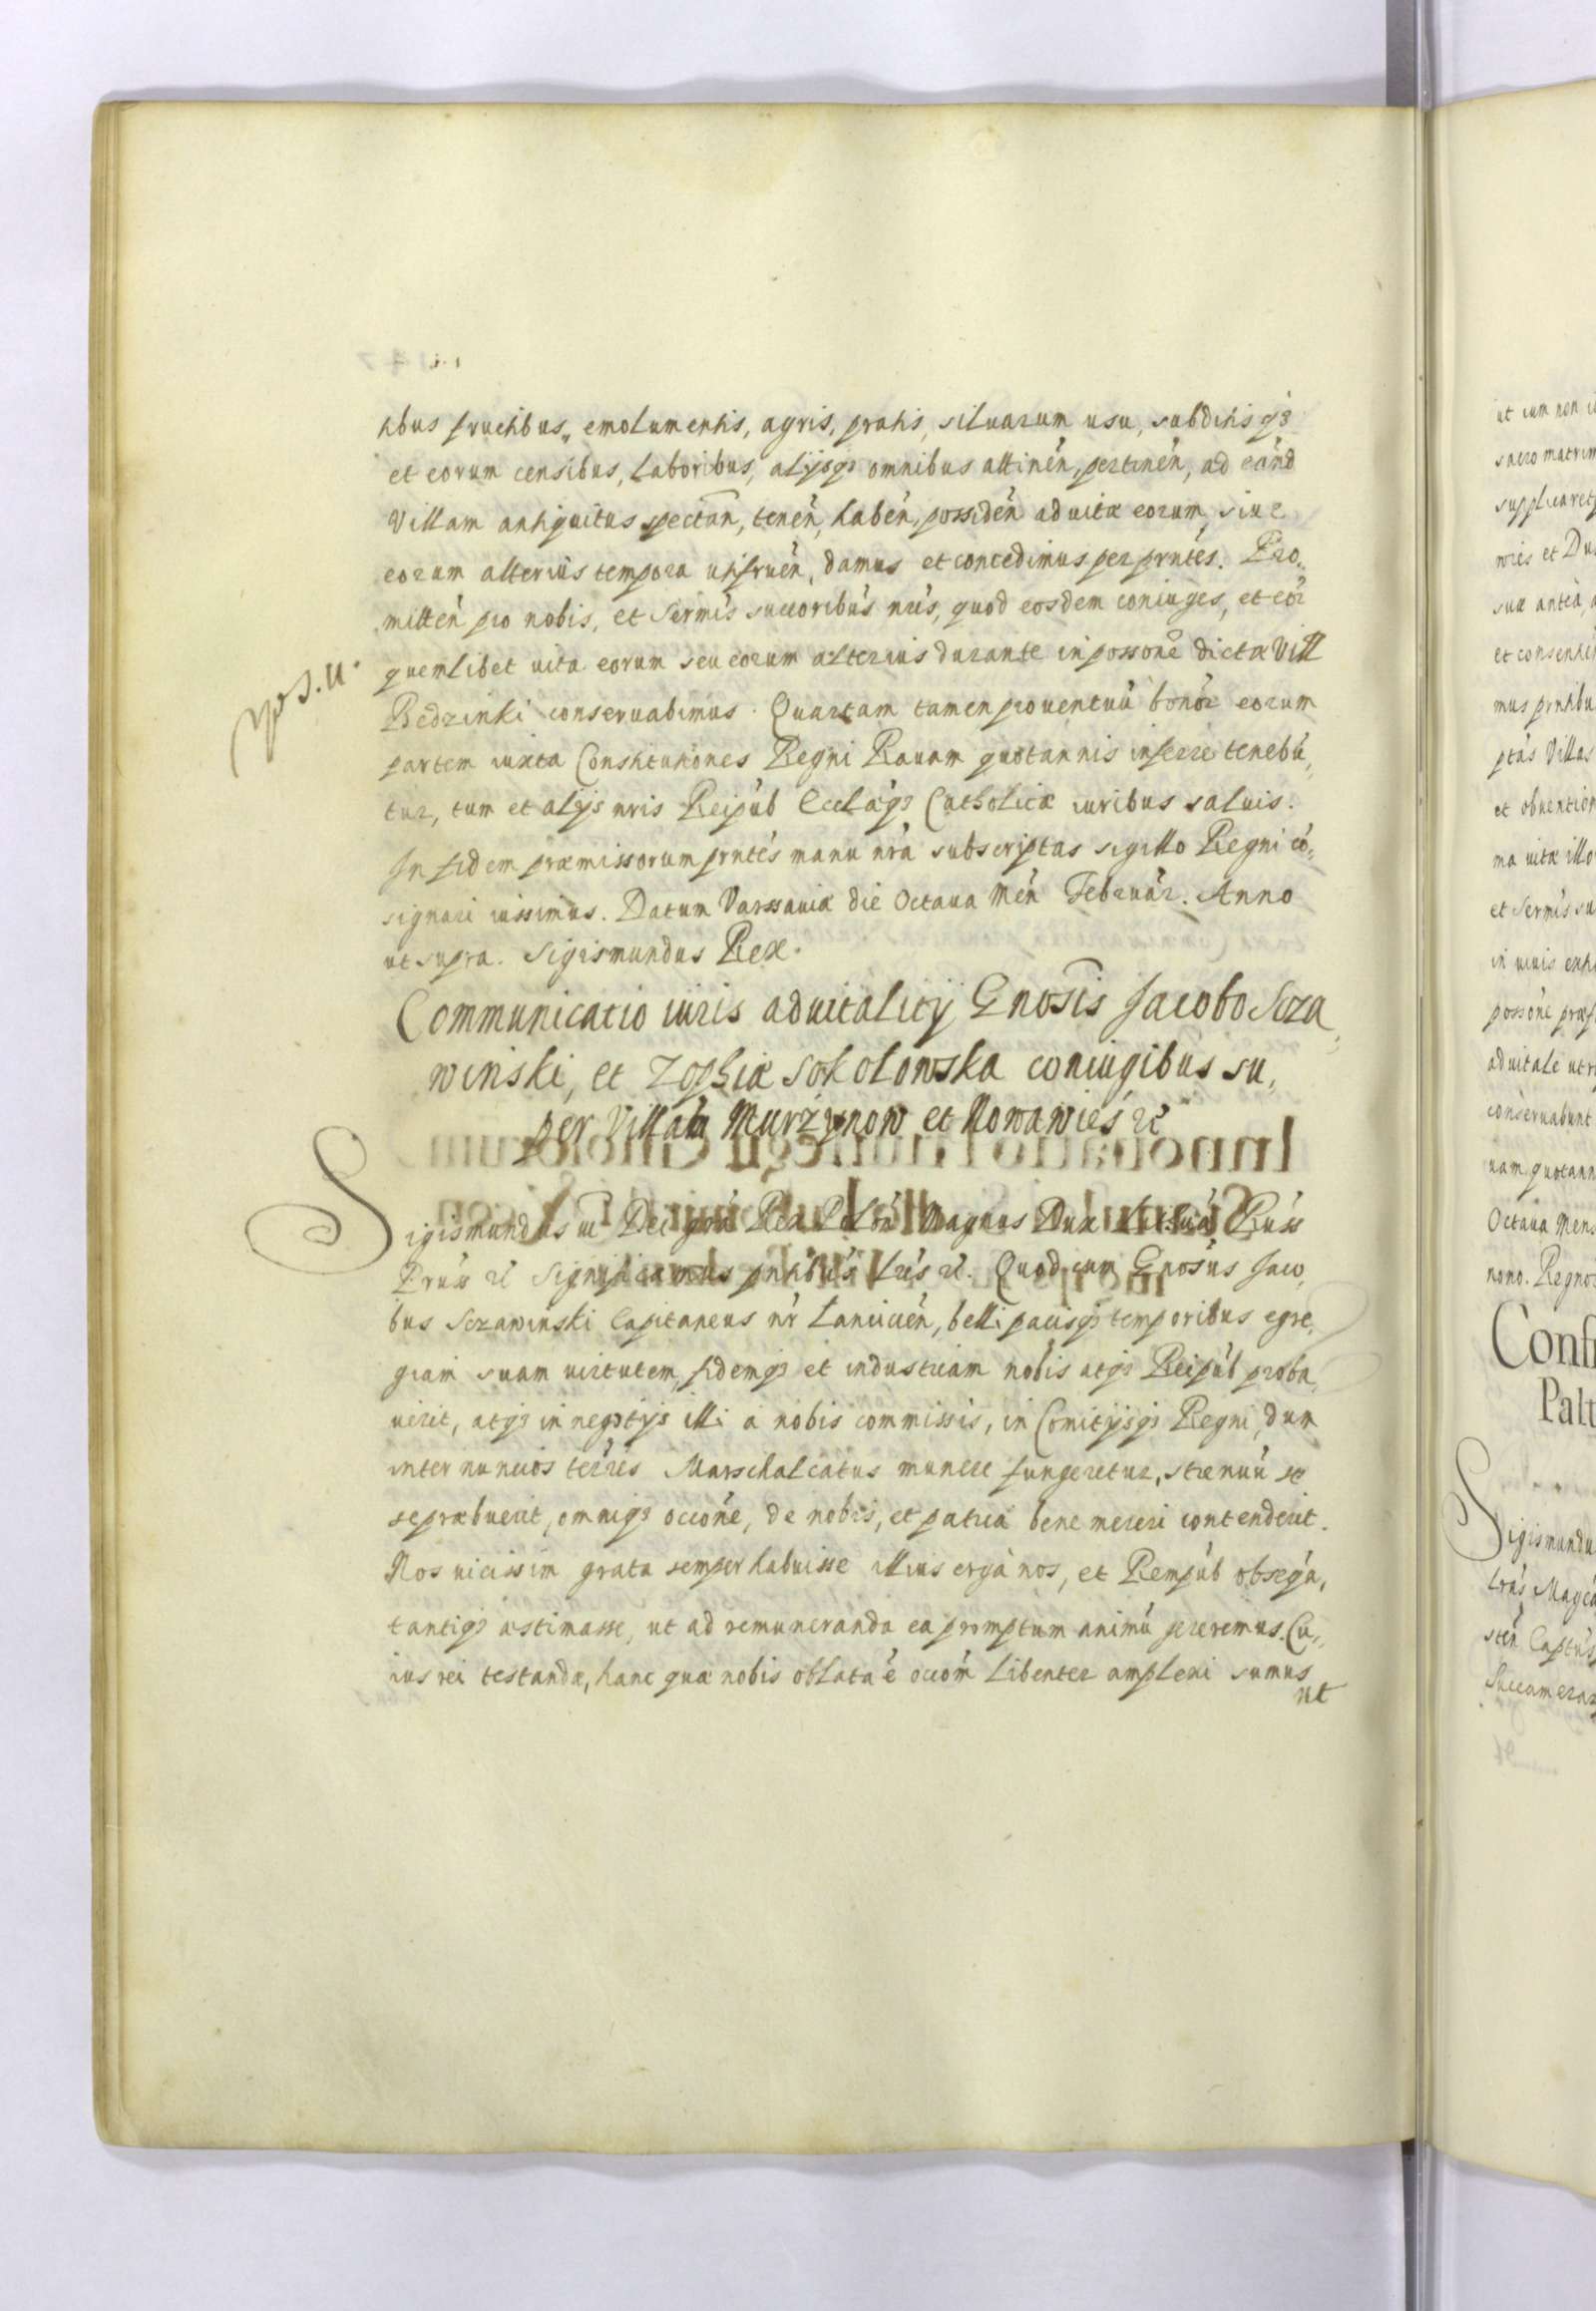 tibus fructibus, emolumentis, agris, pratis, siluarum usu, subditisq3
et eorum censibus, laboribus, alijsq3 omnibus attinen, pertinen, ad eand
Villam antiquitus spectan, tenen, haben, possiden ad uitæ eorum, siue
eorum alterius tempora utifruen, damus et concedimus per prntes. Pro„
mitten pro nobis, et Sermis succoribus nris, quod eosdem coniuges, et eor
quemlibet uita eorum seu eorum alterius durante in possone dictæ Vill
Bedzinki conseruabimus. Quartam tamen prouentuu bonor eorum
partem iuxta Constitutiones Regni Rauam quotannis inferre tenebu„
tur, tum et alijs nris Reipub Eccla'q3 Catholicæ iuribus saluis.
In fidem præmissorum prntes manu nra subscriptas sigillo Regni co„
signari iussimus. Datum Varssauiæ die Octaua Men Februar. Anno
ut supra. Sigismundus Rex.
Communicatio iuris aduitalitij Gnosis Jacobo Scza„
winski, et Zophiæ Sokolowska coniugibus su„
per Villam Murzynow et Nowawies rc
Sigismundus III Dei gra Rex Pol Magnus Dux Lituæ Russ
Pruss rc Significamus pntibus Lris rc. Quod cum Gnosus Jaco„
bus Sczawinski Capitaneus nr Lancicien, belli pacisq3 temporibus egre„
giam suam uirtutem, fidemq3 et industriam nobis atq3 Reipub proba„
uerit, atq3 in negotijs illi a nobis commissis, in Comitijsq3 Regni, dum
inter nuncios terres Marschalcatus munere fungeretur, strenuu se
se præbuerit, omniq3 occone, de nobis, et patria bene mereri contenderit.
Nos uicissim grata semper habuisse illius erga nos, et Rempub obseqa,
tantiq3 æstimasse, ut ad remuneranda ea promptum animu gereremus. Cu„
ius rei testandæ, hanc quæ nobis oblata e occom libenter amplexi sumus
ut